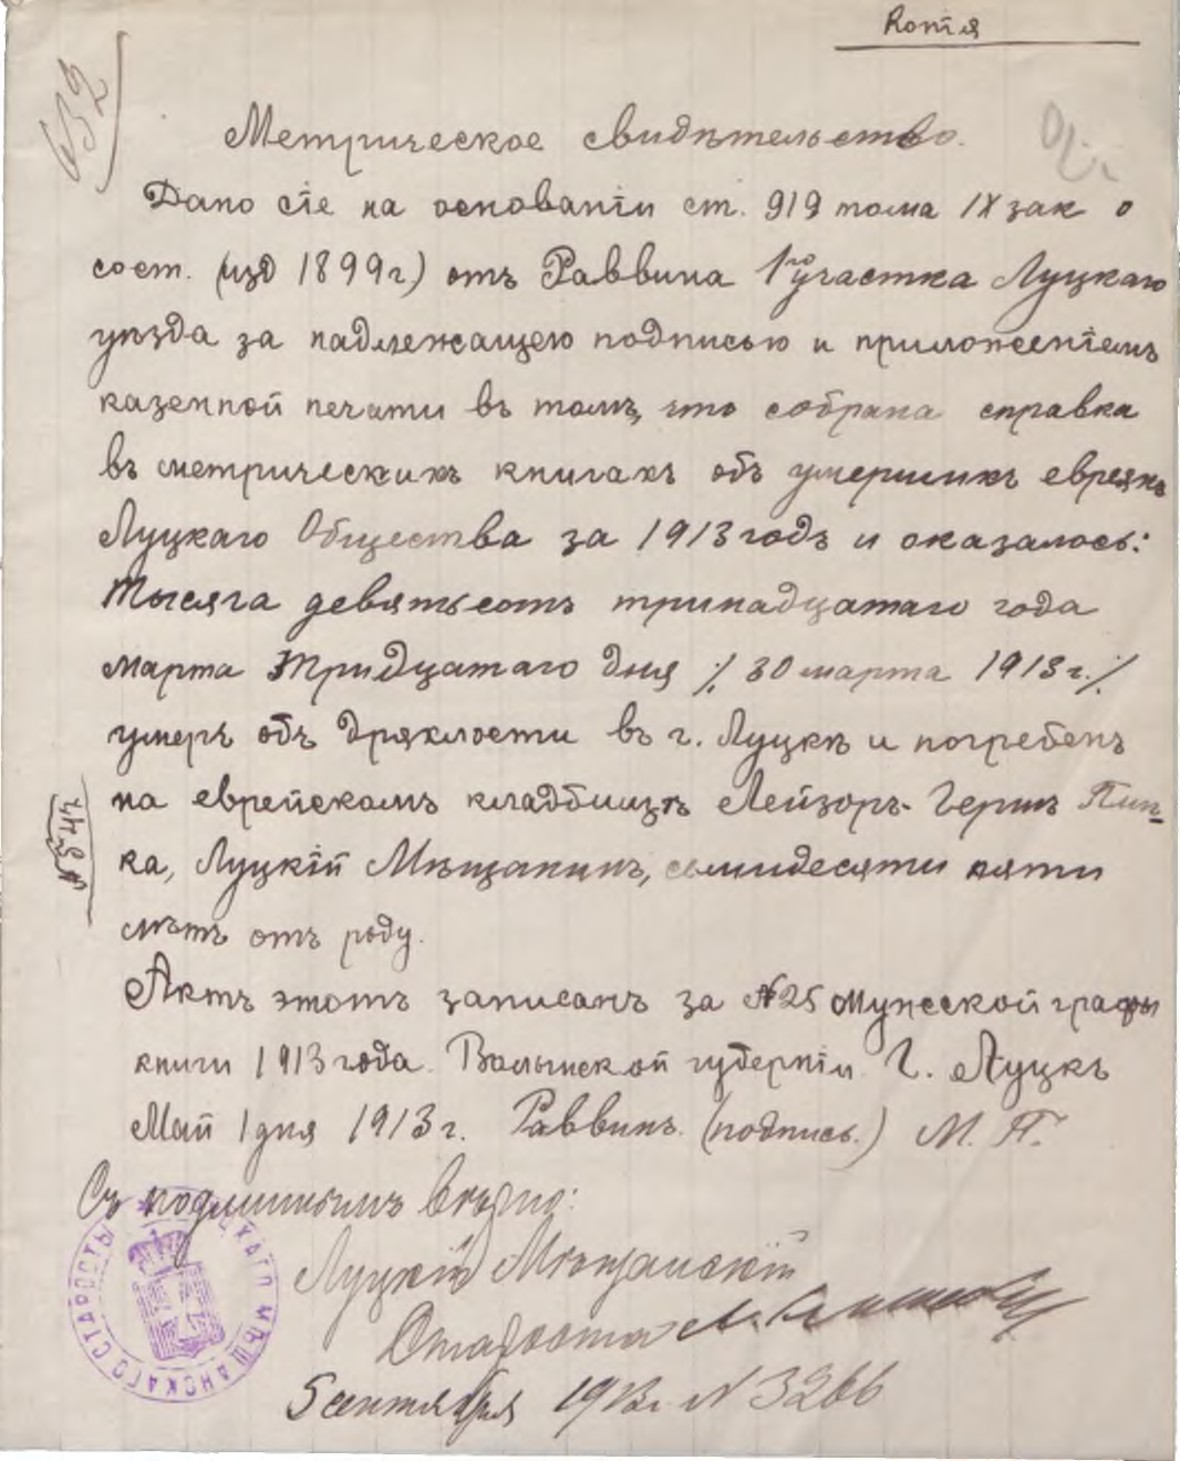 Копія
632
Метрическое свидѣтельство.
Дано сіе на основаніи ст. 919 тома IX зак о
сост. (изд 1899 г.) отъ Раввина 1го участка Луцкаго
уѣзда за надлежащею подписью и приложеніемъ
казенной печати въ томъ, что собрана справка
въ метрическихъ книгахъ объ умершихъ евреяхъ
Луцкаго Общества за 1913 годъ и оказалось:
Тысяча девятьсотъ тринадцатаго года
марта тридцатаго дня ٪ 30 марта 1913 г. ٪
умеръ объ дряхлости въ г. Луцкѣ и погребенъ
на еврейскомъ кладбищѣ Лейзоръ-Гершъ Пин-
ка, Луцкій Мѣщанинъ, семидесяти пяти
лѣтъ отъ роду.
Актъ этотъ записанъ за №25 мужеской графы
книги 1913 года. Волынской губерніи Г. Луцкъ
Май 1 дня 1913 г. Раввинъ. (подпись.) М. П.
Съ подлиннымъ вѣрно:
Луцкій Мѣщанскій
Староста
5 сентября 1913 г. № 3266
ЛУЦКАГО МѢЩАНСКАГО СТАРОСТЫ